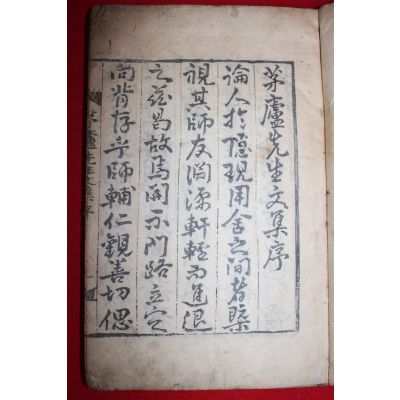 茅廬先生文集序
論人於隱現用舍之間者槩
視其師友淵源軒輊而進退
之玆曷故焉開示門路立定
向背存乎師輔仁觀善切偲
茅廬先生文集序